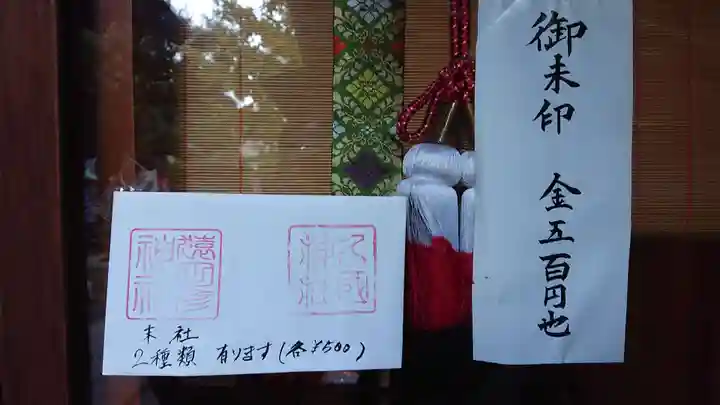 御朱印 金五百円也
九國神社
末社
2種類 有ります(各¥500)